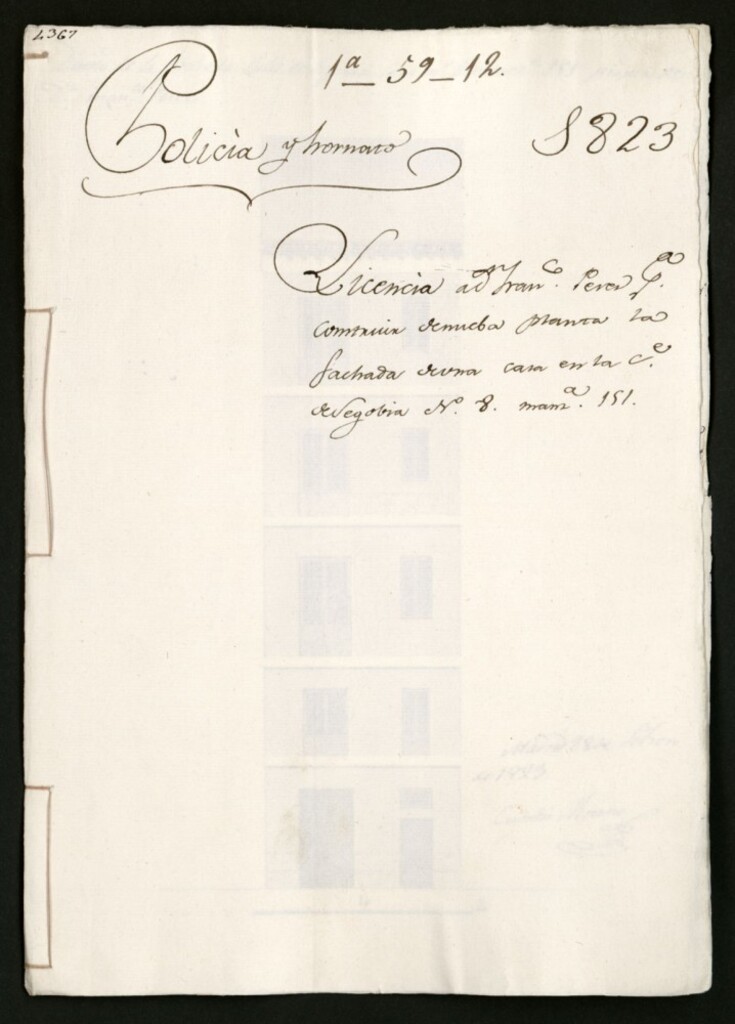 4367
1ª 59-12.
Policía y hornato
1823
Licencia a Dⁿ Franᶜᵒ. Perez pª.
construir de nueba planta la
fachada de una casa en la Cᵉ.
de Segobia Nº. 8. manzª. 151.